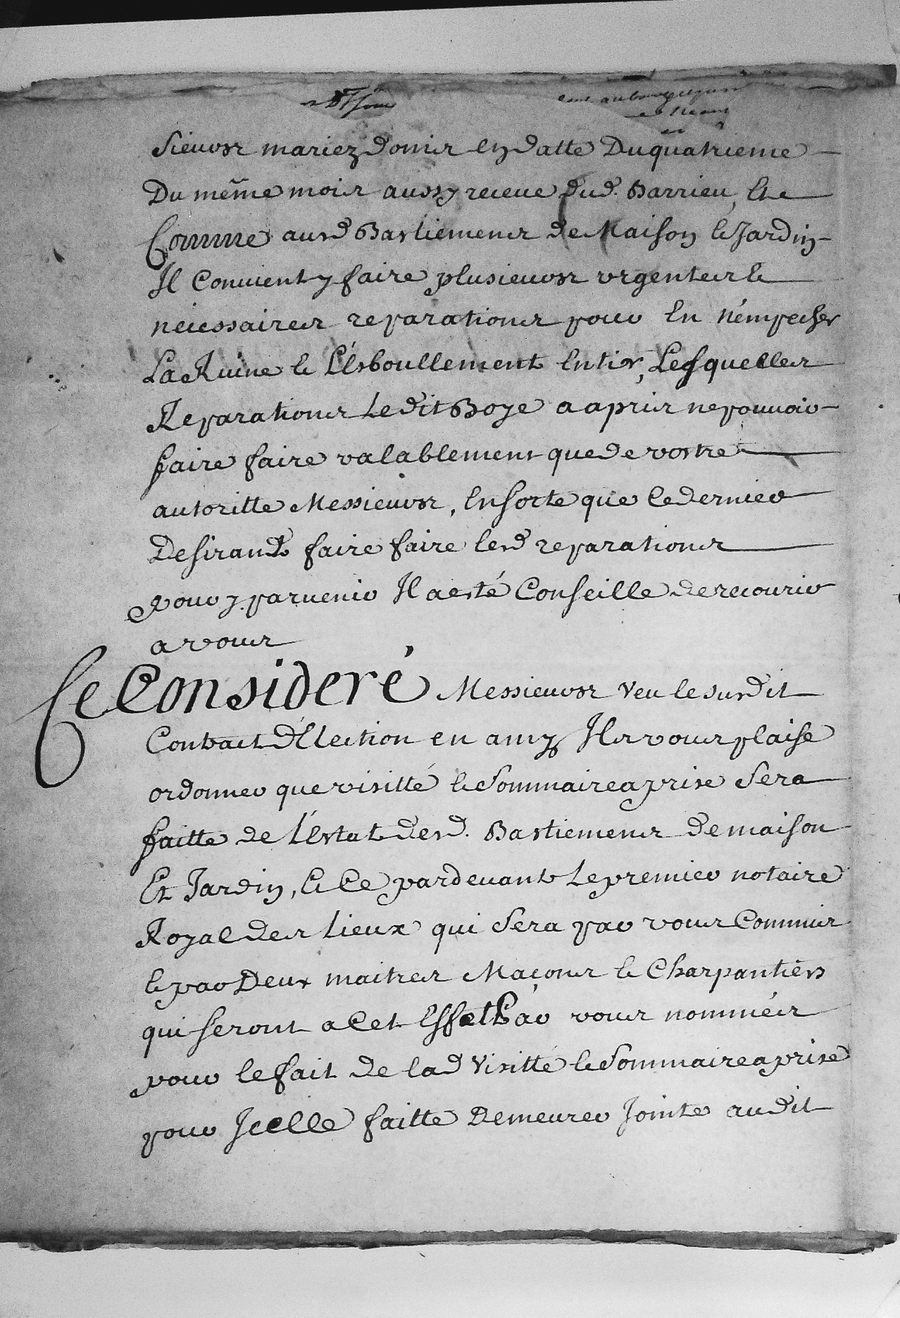 sieurs mariez donis en datte Du quatrieme
Du même mois aussy receue dud. Barrieu, Et
Comme aud Bastiemens de Maison et Jardin
Il Convient y faire plusieurs urgentes et
necessaires reparations pour En n'empecher
La Ruine et l'Esboullement Entier, Lesquelles
Reparations Ledit Boye a apris ne pouvoir
faire faire valablement que de vostre
autoritte Messieurs, En sorte que Ce dernier
Desirant faire faire lesd reparations
pour y parvenir Il a esté Conseille de recourir
a vous
Ce Consideré Messieurs veu le susdit
Contract d'Election en amy Il vous plaise
ordonner que visitté et Sommaire aprise Sera
faitte de l'Estat desd. Bastiemens de maison
Et Jardin, et Ce pardevant Le premier notaire
Royal des lieux qui Sera par vous Commis
et par Deux maitres Maçons et Charpantiers
qui seront a Cet Effet Par vous nommés
pour le fait de lad visitte et Sommaire aprise
pour Icelle faitte Demeurer Jointe audit